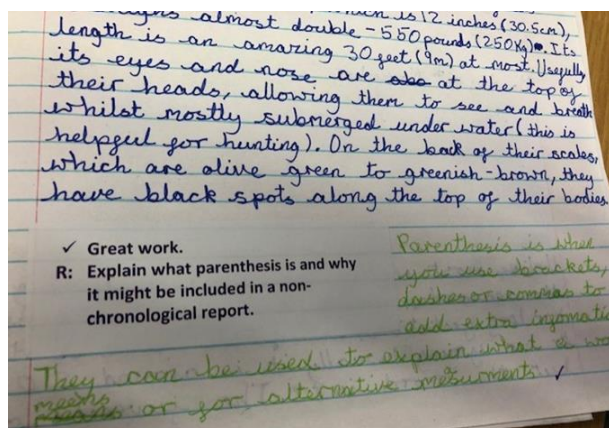 is 12 inches (30.5cm),
almost double - 550 pounds (250Kg). Its
length is an amazing 30 feet (9m) at most. Usefully
its eyes and nose are at the top of
their heads, allowing them to see and breath
whilst mostly submerged under water (this is
helpful for hunting). On the back of their scales,
which are olive green to greenish-brown, they
have black spots along the top of their bodies.
✓ Great work.
R: Explain what parenthesis is and why
it might be included in a non-
chronological report.
Parenthesis is when
you use brackets,
dashes or commas to
add extra
They can be used to explain what a
meens
or for alternative mesurments ✓